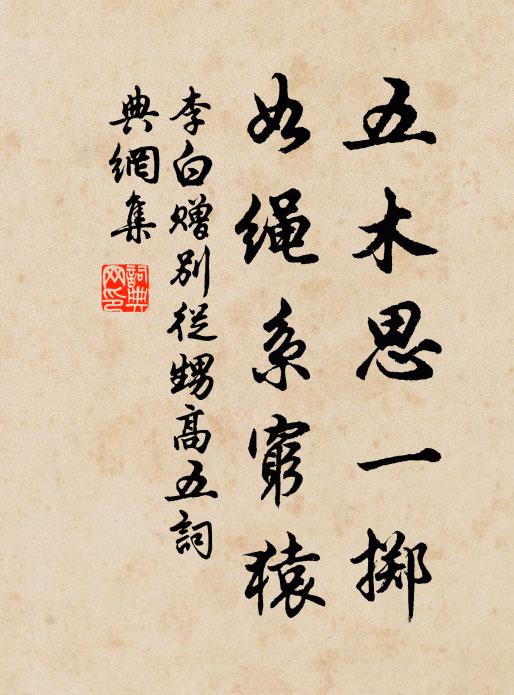 五木思一掷
如绳系穷猿
李白赠别從甥高五詞
典網集
詞典
网印